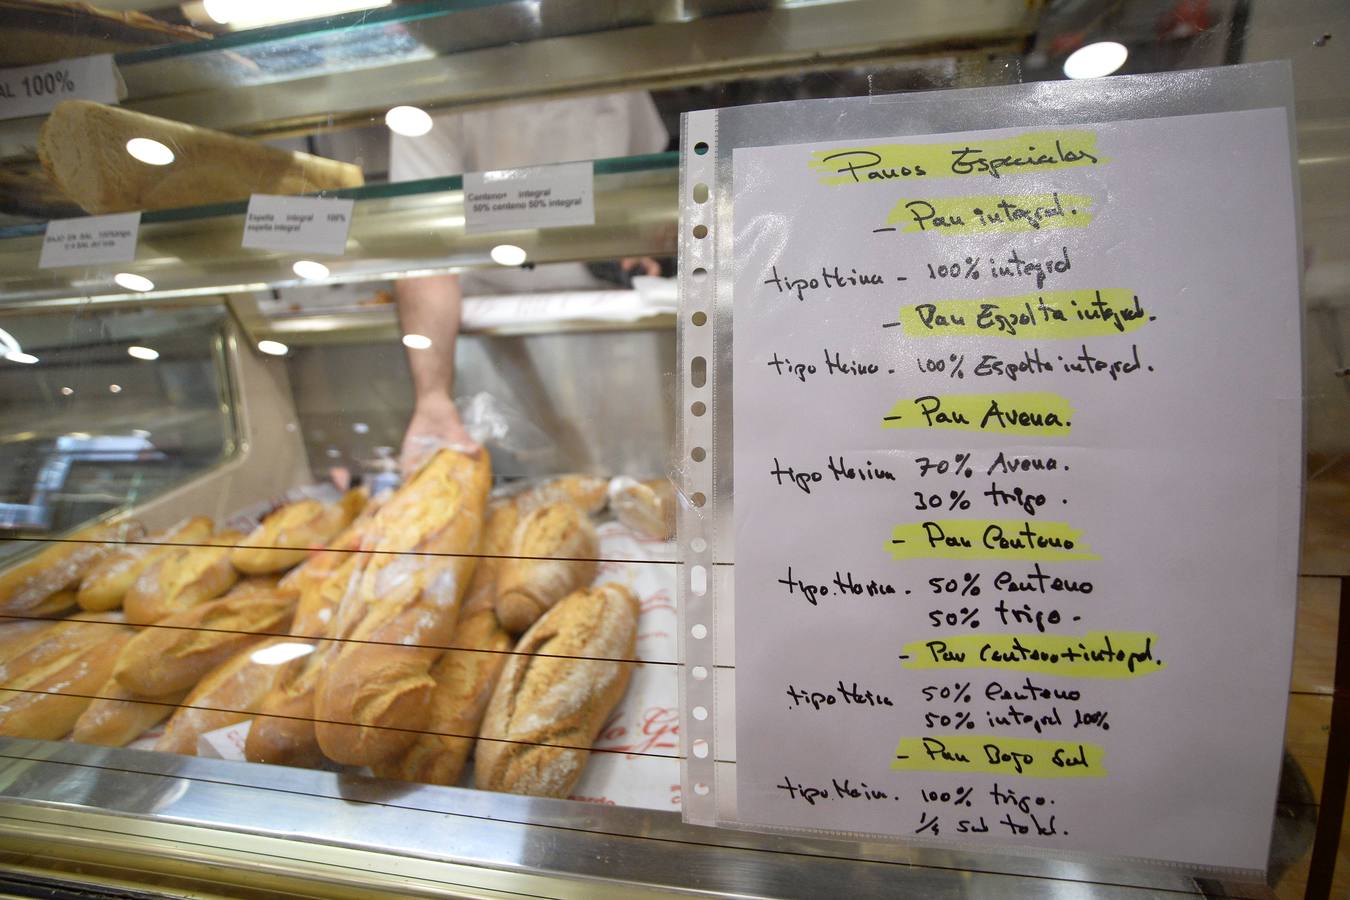 AL 100%
BAJO EN SAL 100%trigo
Espelta integral 100%
espelta integral
Centeno+ integral
50% centeno 50% integral
Panes Especiales
- Pan integral.
tipo Harina - 100% integral
- Pan Espelta integral.
tipo Harina - 100% Espelta integral.
- Pan Avena.
tipo Harina 70% Avena.
30% trigo.
- Pan Centeno
tipo. Harina. 50% Centeno
50% trigo.
- Pan Centeno+integral.
tipo Harina 50% Centeno
50% integral 100%
- Pan Bajo Sal
tipo. Harin. 100% trigo.
1/4 sal total.